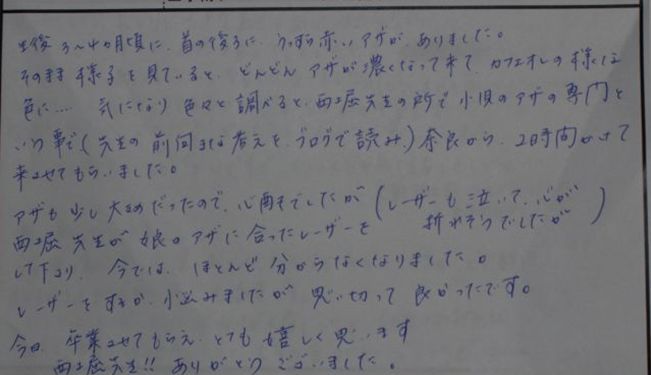 生後3〜4ヵ月頃に、首の後ろに、うっすら赤いアザがありました。
そのまま様子を見ていると、どんどんアザが濃くなって来て、カフェオレの様な
色に… 気になり色々と調べると、西堀先生の所で小児のアザの専門と
いう事で(先生の前向きな考えを、ブログで読み、)奈良から、2時間かけて
来させてもらいました。
アザも少し大きめだったので、心配でしたが(レーザーも泣いて、心が
折れそうでしたが)
西堀先生が娘のアザに合ったレーザーを
して下さり、今では、ほとんど分からなくなりました。
レーザーをするか、悩みましたが思い切って良かったです。
今日、卒業させてもらえ、とても嬉しく思います
西堀先生!! ありがとうございました。